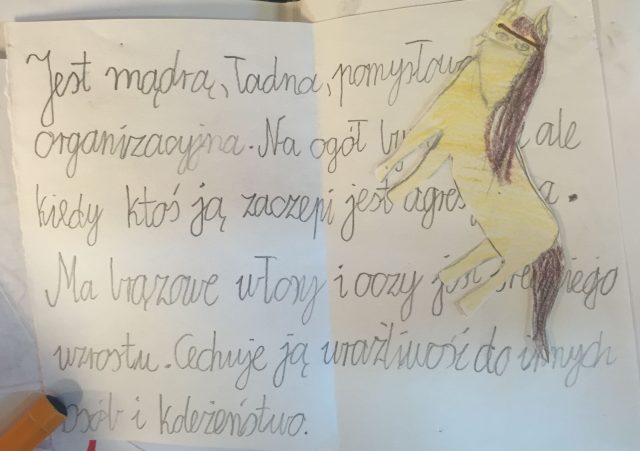 Jest mądra, ładna, pomysłowa
organizacyjna. Na ogół ale
kiedy ktoś ją zaczepi jest
Ma brązowe włosy i oczy jest średniego
wzrostu. Cechuje ją wrażliwość do innych
osób i koleżeństwo.